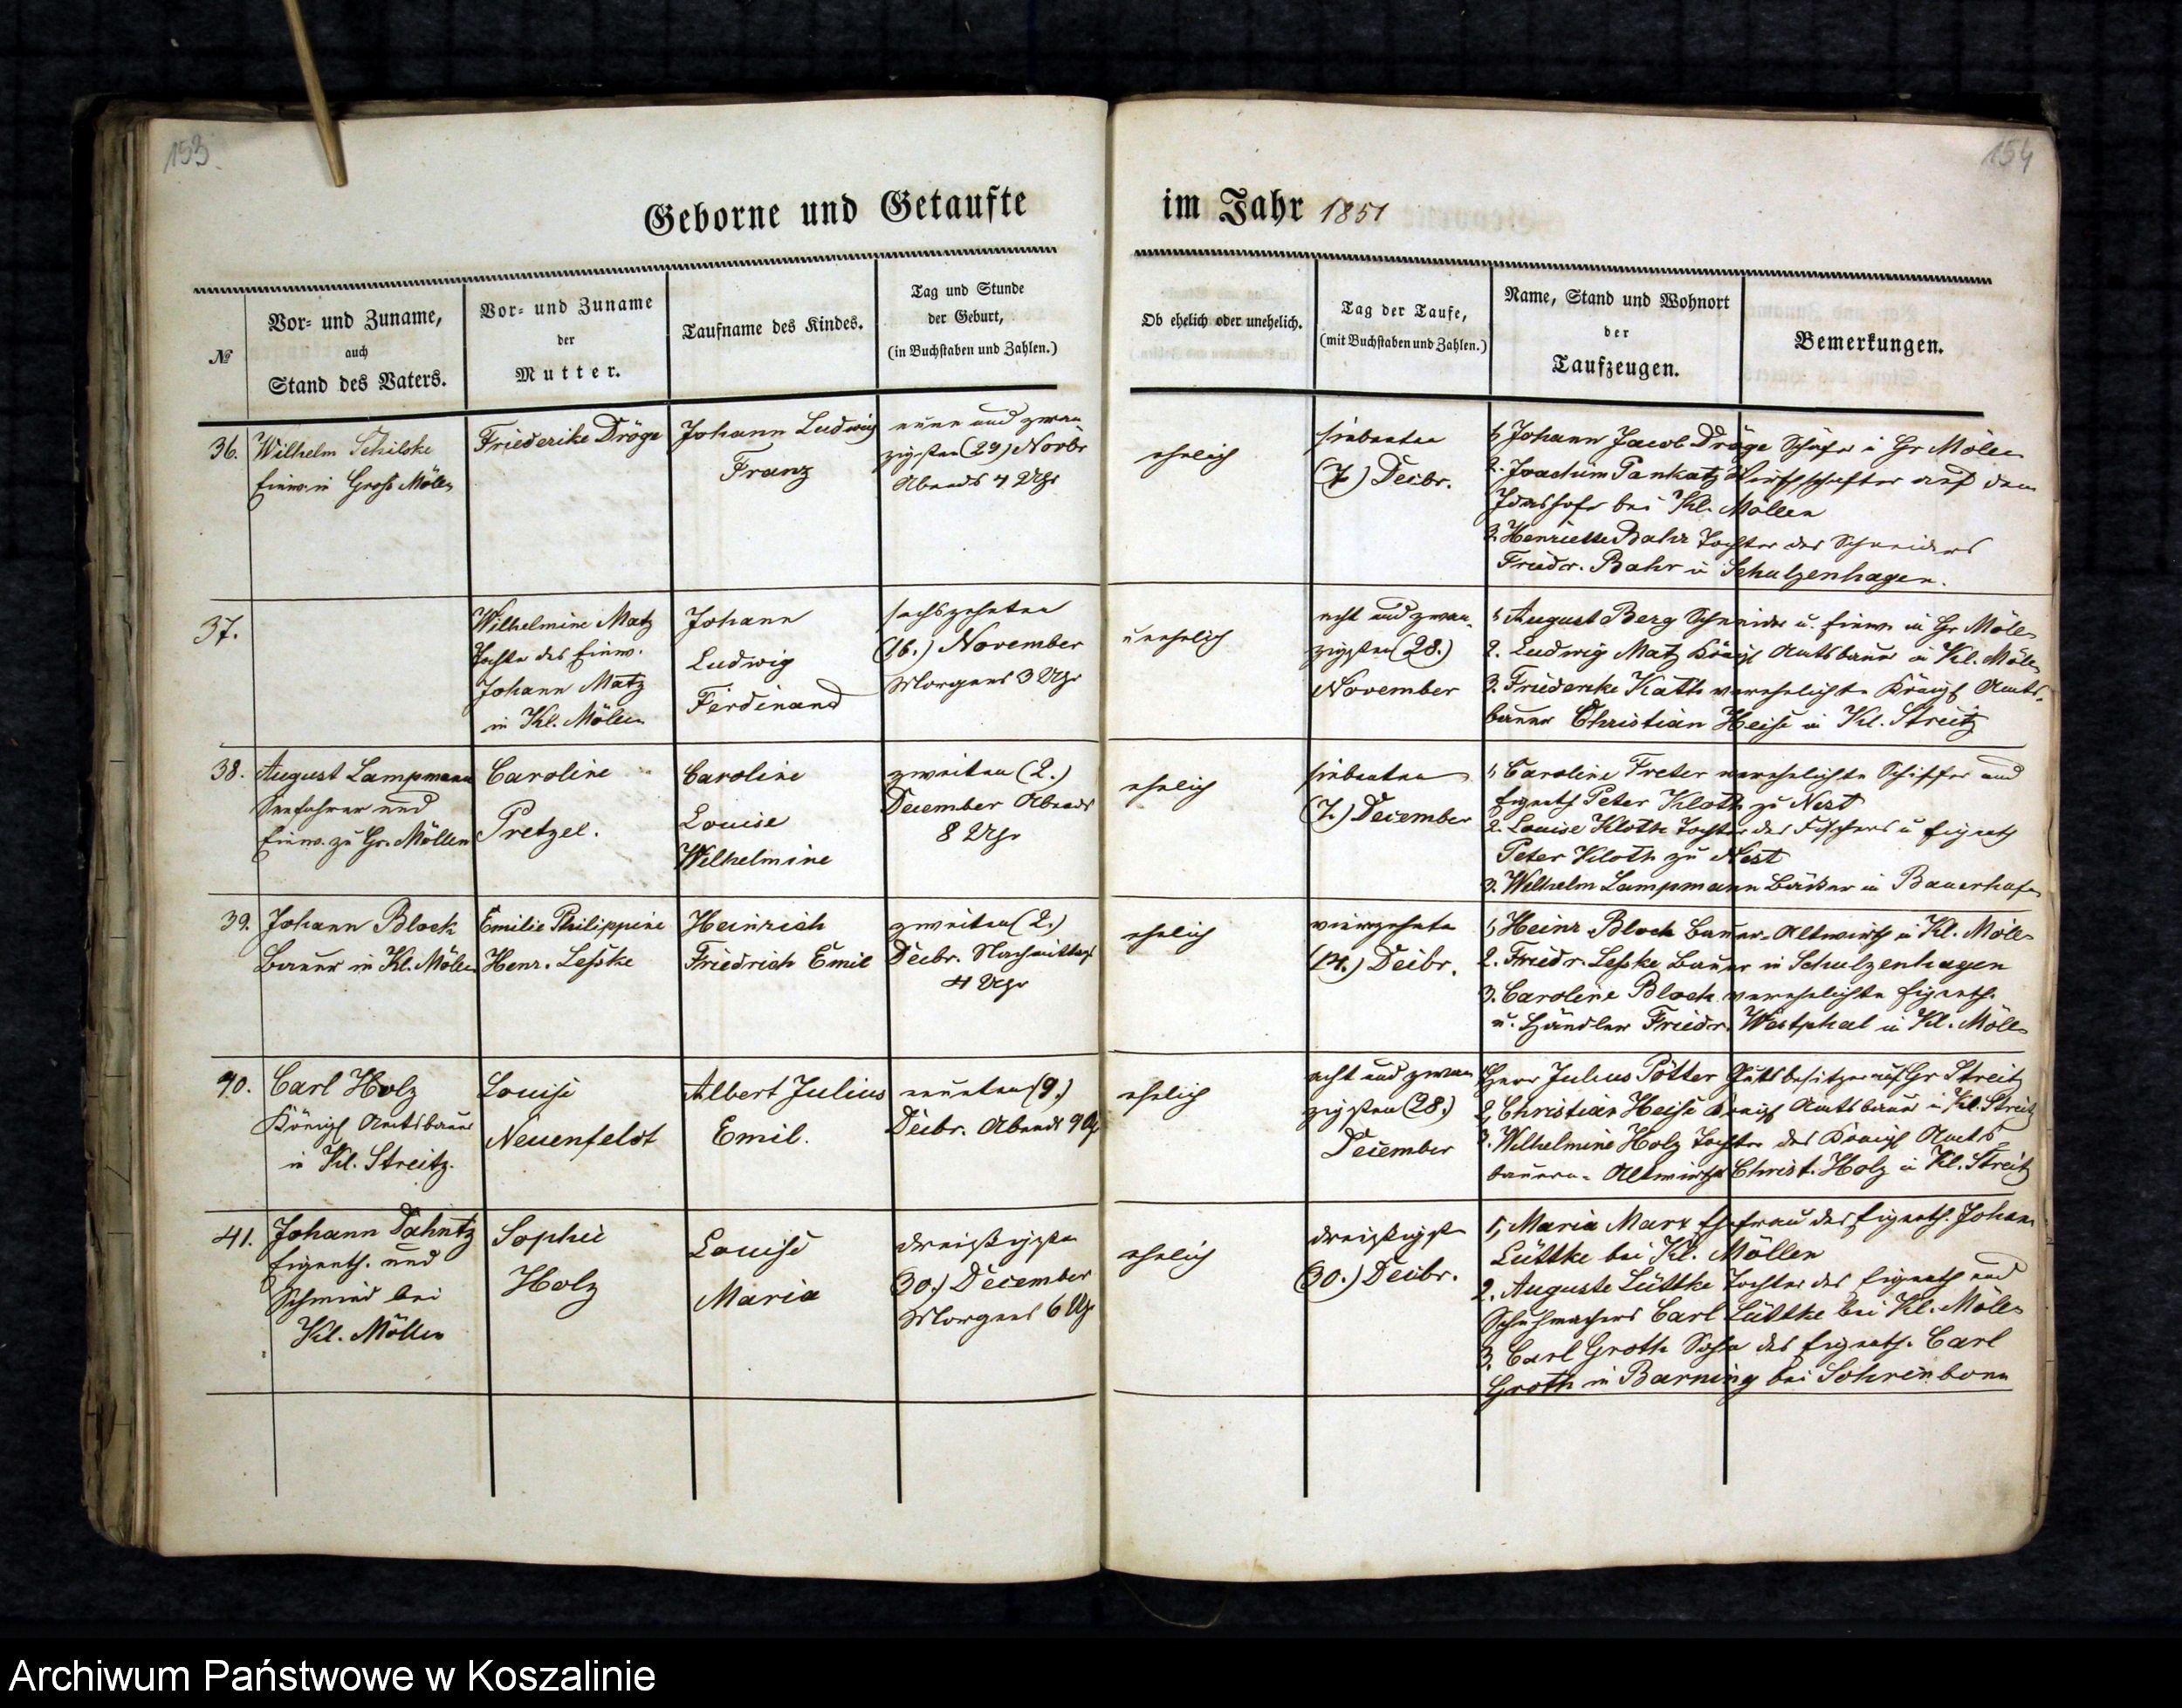 153.
154
Geborne und Getaufte
im Jahr 1851
№
Vor- und Zuname,
auch
Stand des Vaters.
Vor- und Zuname
der
Mutter.
Taufname des Kindes.
Tag und Stunde
der Geburt,
(in Buchstaben und Zahlen.)
Ob ehelich oder unehelich.
Tag der Taufe,
(mit Buchstaben und Zahlen.)
Name, Stand und Wohnort
der
Taufzeugen.
Bemerkungen.
36.
Wilhelm Schilske
Einw. in Groß Möllen
Friederike Dröge
Johann Ludwig
Franz
neun und zwan
zigsten (29) Novbr
Abends 4 Uhr
ehelich
siebenten
(7) Decbr.
1, Johann Jacob Dröge Schäfer in Gr Möllen
2. Joachim Pankatz Wirthschafter auf dem
Idashofe bei Kl. Möllen
3. Henriette Bahr Tochter des Schneiders
Friedr. Bahr in Schulzenhagen.
37.
Wilhelmine Matz
Tochter des Einw.
Johann Matz
in Kl. Möllen
Johann
Ludwig
Ferdinand
sechszehnten
(16.) November
Morgens 3 Uhr
unehelich
acht und zwan-
zigsten (28.)
November
1, August Berg Schneider u. Einw. in Gr Möllen
2. Ludwig Matz Königl Amtsbauer in Kl. Möllen
3. Friederike Kath verehelichte Königl Amts-
bauer Christian Heise in Kl. Streitz
38.
August Lampmann
Seefahrer und
Einw. zu Gr. Möllen
Caroline
Pretzel.
Caroline
Louise
Wilhelmine
zweiten (2.)
December Abends
8 Uhr
ehelich
siebenten
(7.) December
1, Caroline Freter verehelichte Schiffer und
Eigenth Peter Kloth zu Nest
2. Louise Kloth Tochter des Fischers u Eigenth
Peter Kloth zu Nest
3. Wilhelm Lampmann Bäcker in Bauerhufen
39.
Johann Block
Bauer in Kl. Möllen
Emilie Philippine
Henr. Leßke
Heinrich
Friedrich Emil
zweiten (2.)
Decbr. Nachmittags
4 Uhr
ehelich
vierzehnte
(14.) Decbr.
1, Heinr. Block Bauer-Altwirth in Kl. Möllen
2. Friedr. Leßke Bauer in Schulzenhagen
3. Caroline Block verehelichte Eigenth.
u. Händler Friedr. Westphal in Kl. Möllen
40.
Carl Holz
Königl Amtsbauer
in Kl. Streitz.
Louise
Neuenfeldt
Albert Julius
Emil.
neunten (9.)
Decbr. Abends 9 Uhr
ehelich
acht und zwan
zigsten (28.)
December
1, Herr Julius Pötter Gutsbesitzer auf Gr Streitz
2, Christian Heise Königl Amtsbauer in Kl. Streitz
3. Wilhelmine Holz Tochter des Königl Amts-
bauern-Altwirths Christ. Holz in Kl. Streitz
41.
Johann Dahntz
Eigenth. und
Schmied bei
Kl. Möllen
Sophie
Holz
Louise
Maria
dreißigsten
(30.) December
Morgens 6 Uhr
ehelich
dreißigste
(30.) Decbr.
1, Maria Marx Ehefrau des Eigenth. Johann
Lüttke bei Kl. Möllen
2. Auguste Lüttke Tochter des Eigenth und
Schuhmachers Carl Lüttke bei Kl. Möllen
3. Carl Groth Sohn des Eigenth. Carl
Groth in Barning bei Sohrenbohm
Archiwum Państwowe w Koszalinie